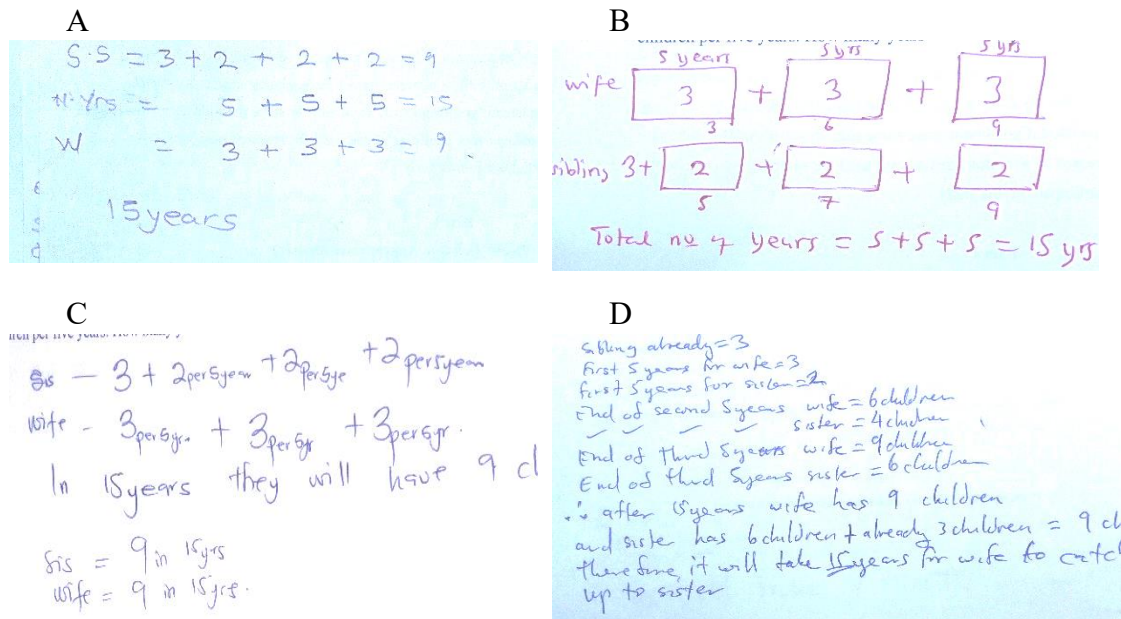 A
S.S = 3 + 2 + 2 + 2 = 9
N.Yrs = 5 + 5 + 5 = 15
W = 3 + 3 + 3 = 9.
15 years
B
children per five years. How many years
5 years 5 yrs 5 yrs
wife 3 + 3 + 3
3 6 9
sibling 3+ 2 + 2 + 2
5 7 9
Total no of years = 5+5+5 = 15 yrs
C
ren per five years. How many y
Sis - 3 + 2 per 5 year + 2 per 5 ye + 2 per 5 year
wife - 3 per 5 yr. + 3 per 5 yr + 3 per 5 yr.
In 15 years they will have 9 cl
Sis = 9 in 15 yrs
wife = 9 in 15 yrs.
D
Sibling already = 3
First 5 years for wife = 3
first 5 years for sister = 2
End of second 5 years wife = 6 children
sister = 4 children
End of third 5 years wife = 9 children
End of third 5 years sister = 6 children
∴ after 15 years wife has 9 children
and sister has 6 children + already 3 children = 9 ch
therefore, it will take 15 years for wife to catch
up to sister